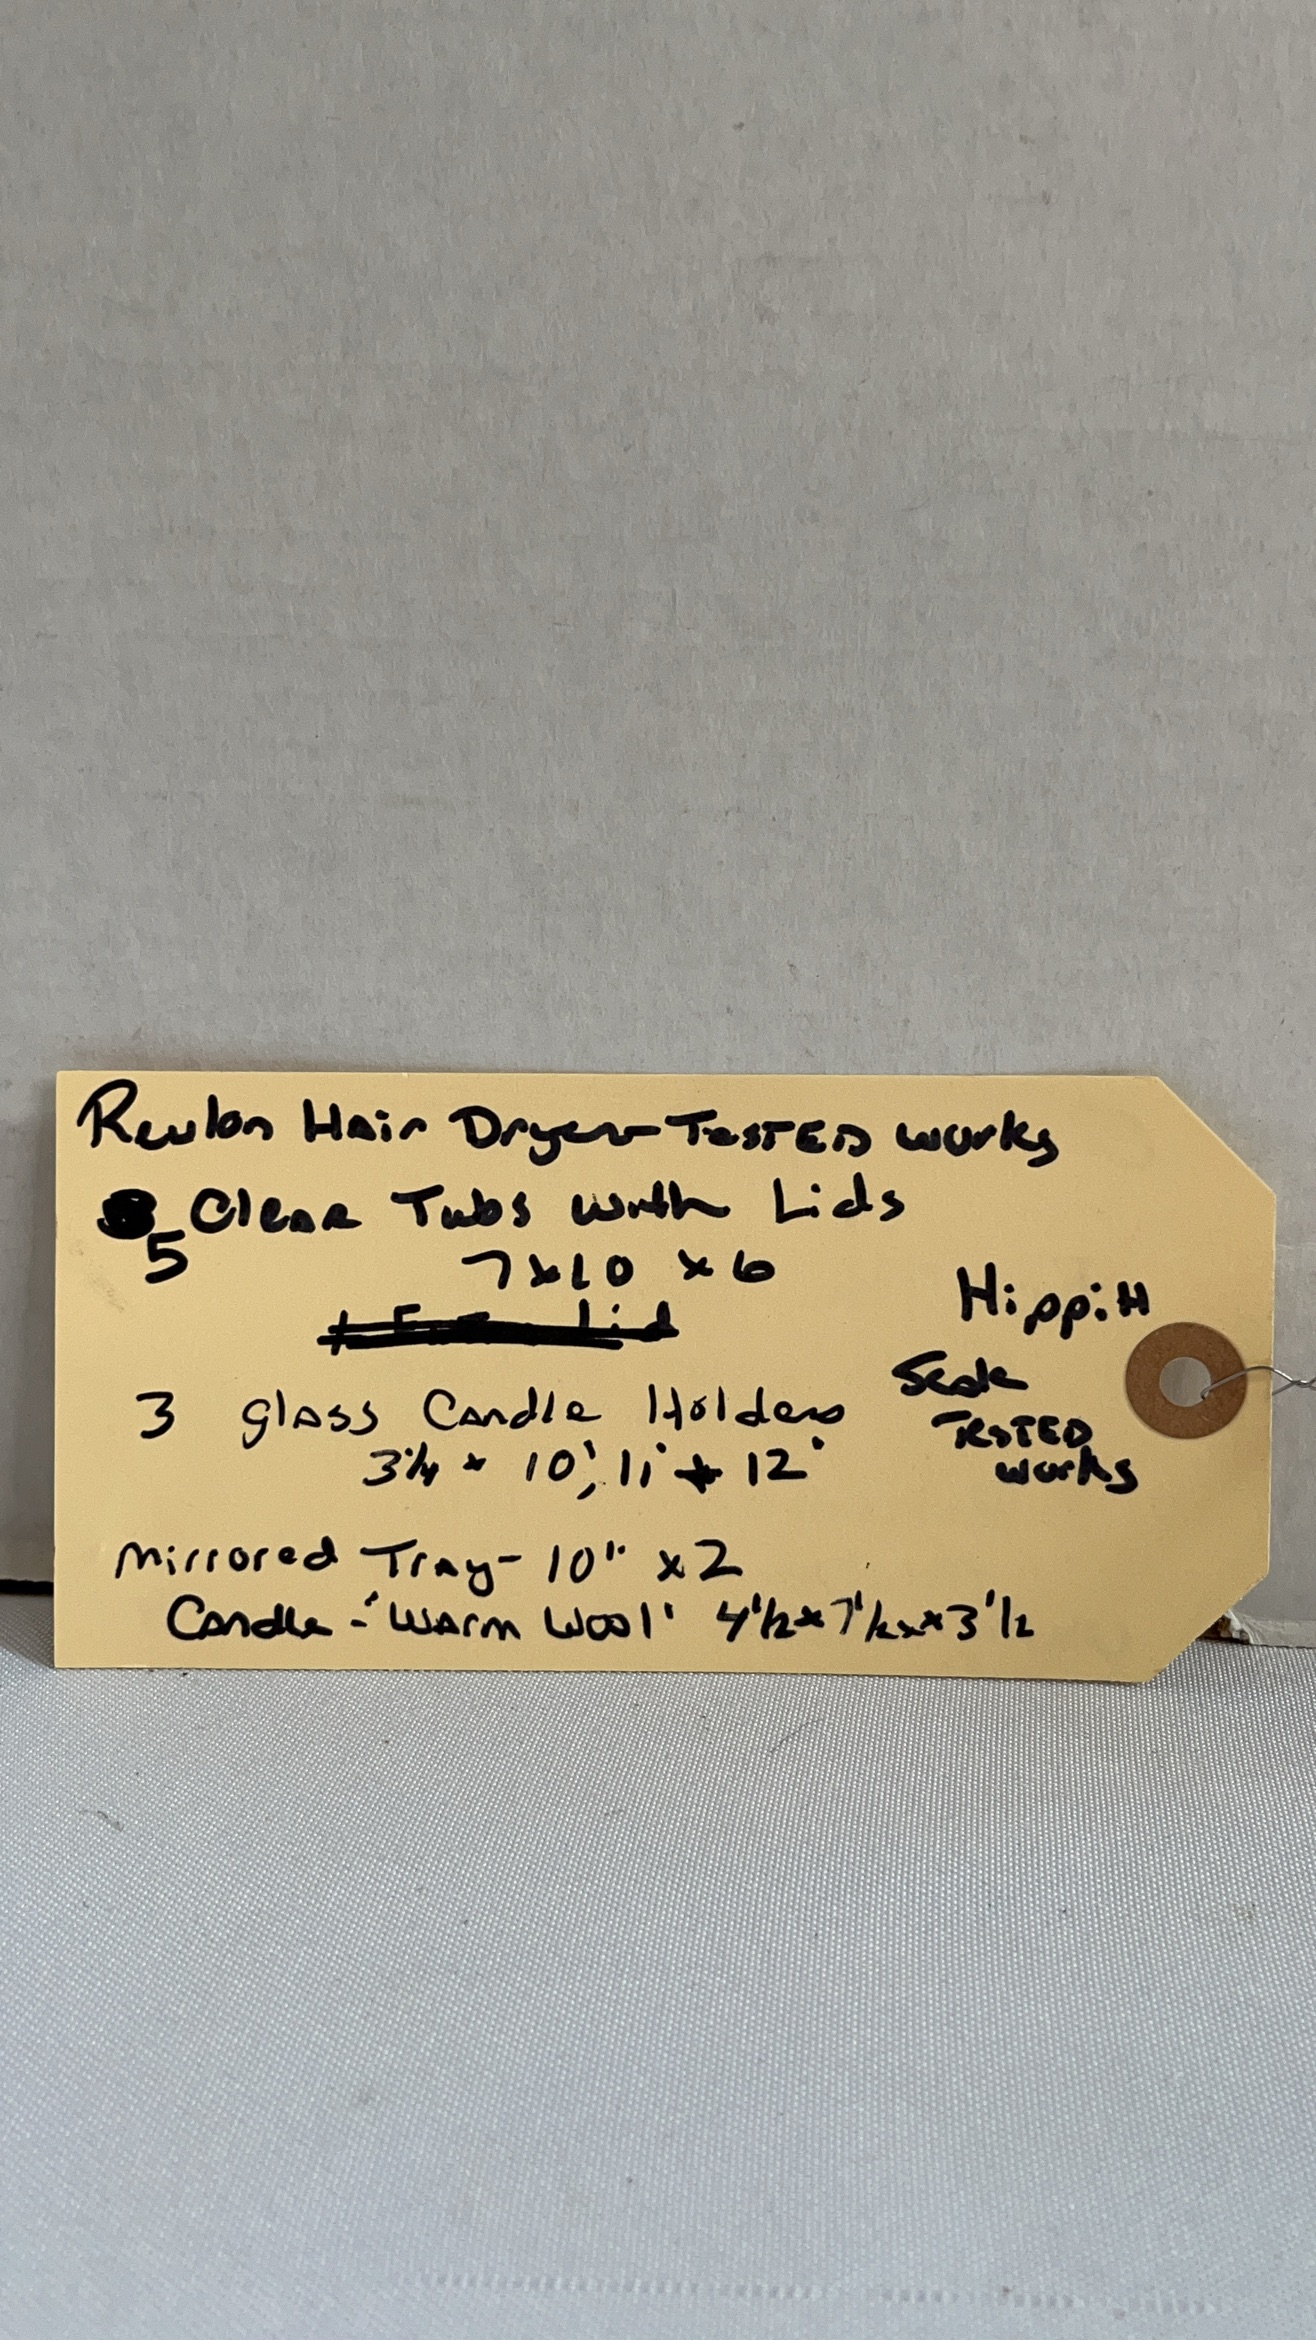 Revlon Hair Dryer - TESTED works
5 Clear Tubs with Lids
7x10 x 6
3 glass Candle Holders
3 1/4 x 10", 11" + 12"
Mirrored Tray - 10" x 2
Candle - "Warm Wool" 4 1/2 x 7 1/2 x 3 1/2
Scale
TESTED
works